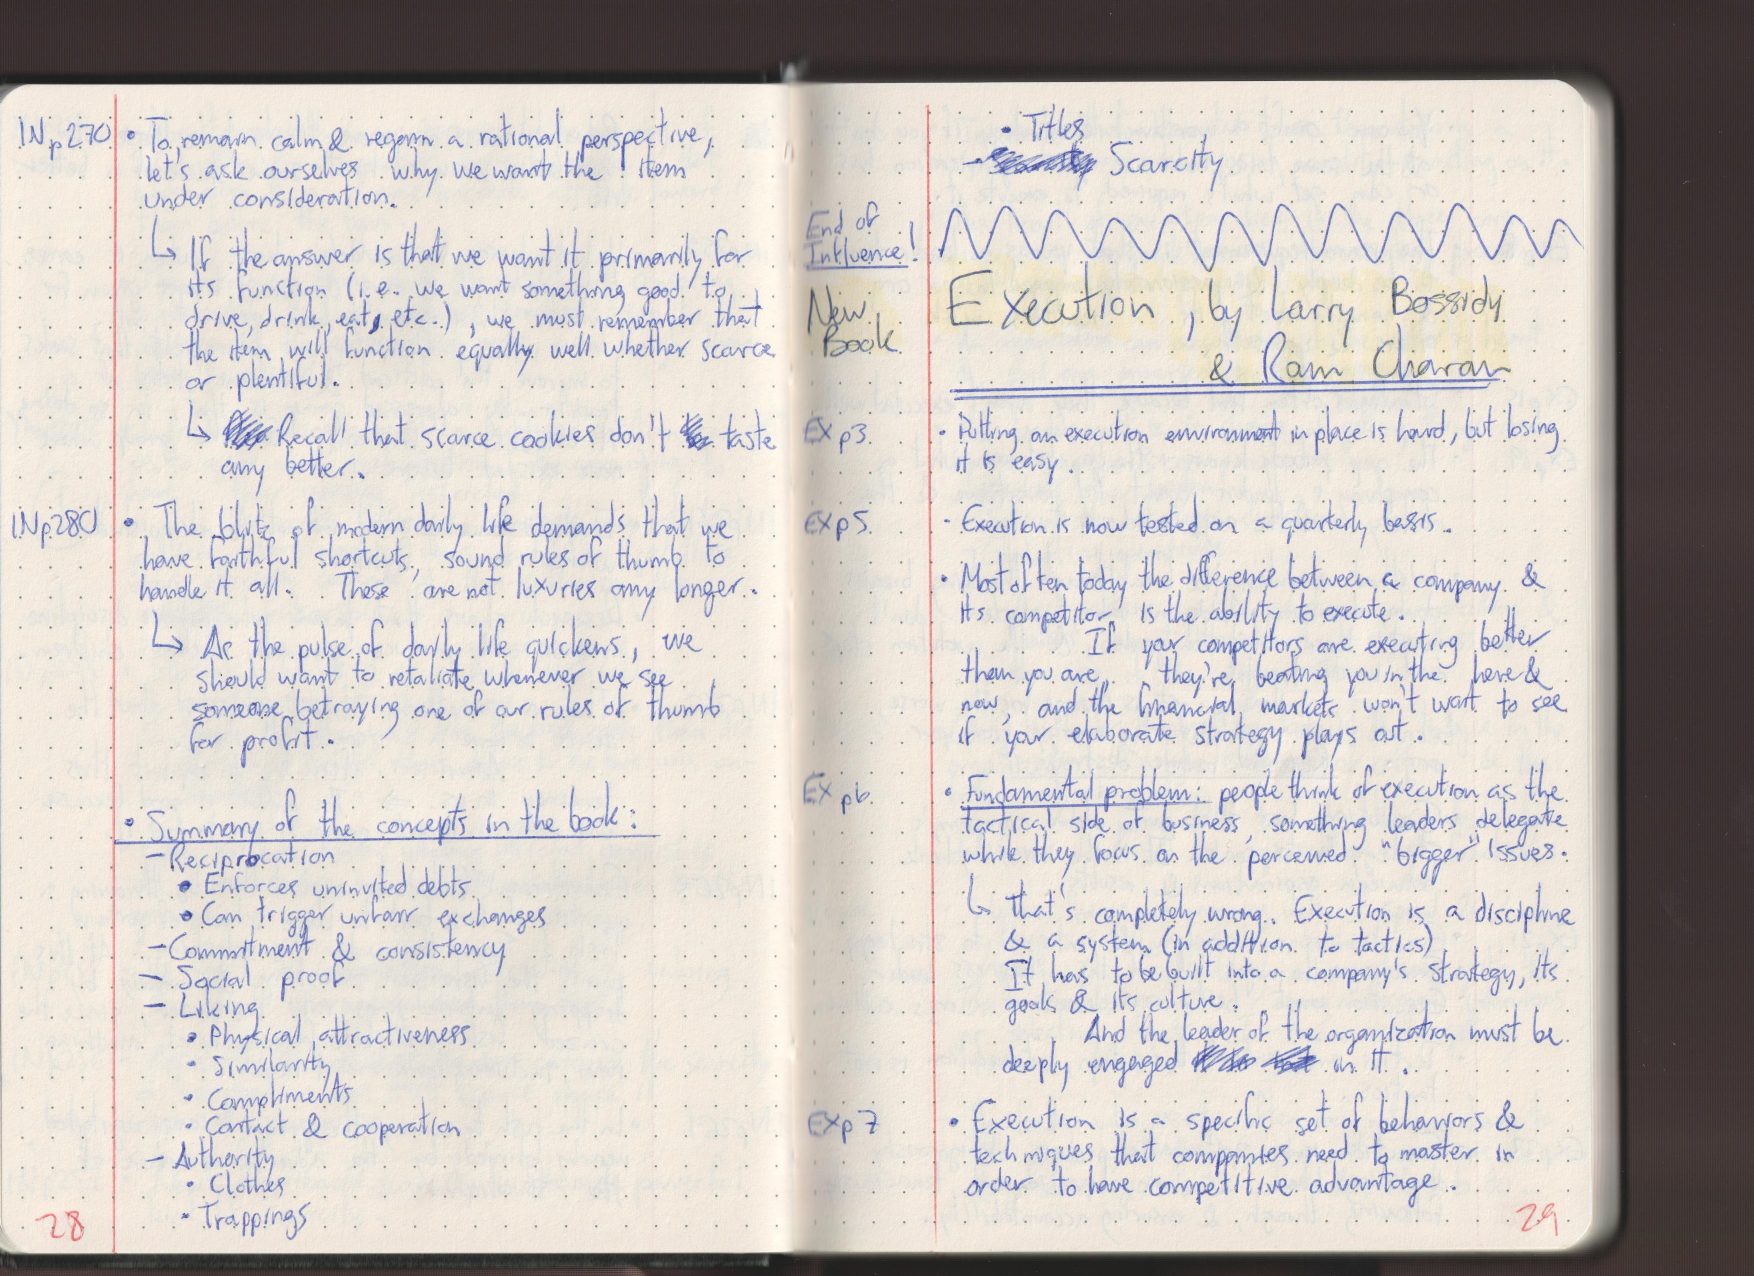 INp270 • To remain calm & regain a rational perspective,
let's ask ourselves why we want the item
under consideration.
↳ If the answer is that we want it primarily for
its function (i.e. we want something good to
drive, drink, eat, etc.), we must remember that
the item will function equally well whether scarce
or plentiful.
↳ Recall that scarce cookies don't taste
any better.
INp280 • The blitz of modern daily life demands that we
have faithful shortcuts, sound rules of thumb to
handle it all. These are not luxuries any longer.
↳ As the pulse of daily life quickens, we
should want to retaliate whenever we see
someone betraying one of our rules of thumb
for profit.
• Summary of the concepts in the book:
- Reciprocation
• Enforces uninvited debts
• Can trigger unfair exchanges
- Commitment & consistency
- Social proof
- Liking
• Physical attractiveness
• Similarity
• Compliments
• Contact & cooperation
- Authority
• Clothes
• Trappings
28
• Titles
- Scarcity
End of
Influence!
New
Book
Execution, by Larry Bossidy
& Ram Charan
EXp3 • Putting an execution environment in place is hard, but losing
it is easy.
EXp5 • Execution is now tested on a quarterly basis.
• Most often today the difference between a company &
its competitor is the ability to execute.
If your competitors are executing better
than you are, they're beating you in the here &
now, and the financial markets won't wait to see
if your elaborate strategy plays out.
EXp6 • Fundamental problem: people think of execution as the
tactical side of business, something leaders delegate
while they focus on the perceived "bigger" issues.
↳ That's completely wrong. Execution is a discipline
& a system (in addition to tactics)
It has to be built into a company's strategy, its
goals & its culture.
And the leader of the organization must be
deeply engaged in it.
EXp7 • Execution is a specific set of behaviors &
techniques that companies need to master in
order to have competitive advantage.
29